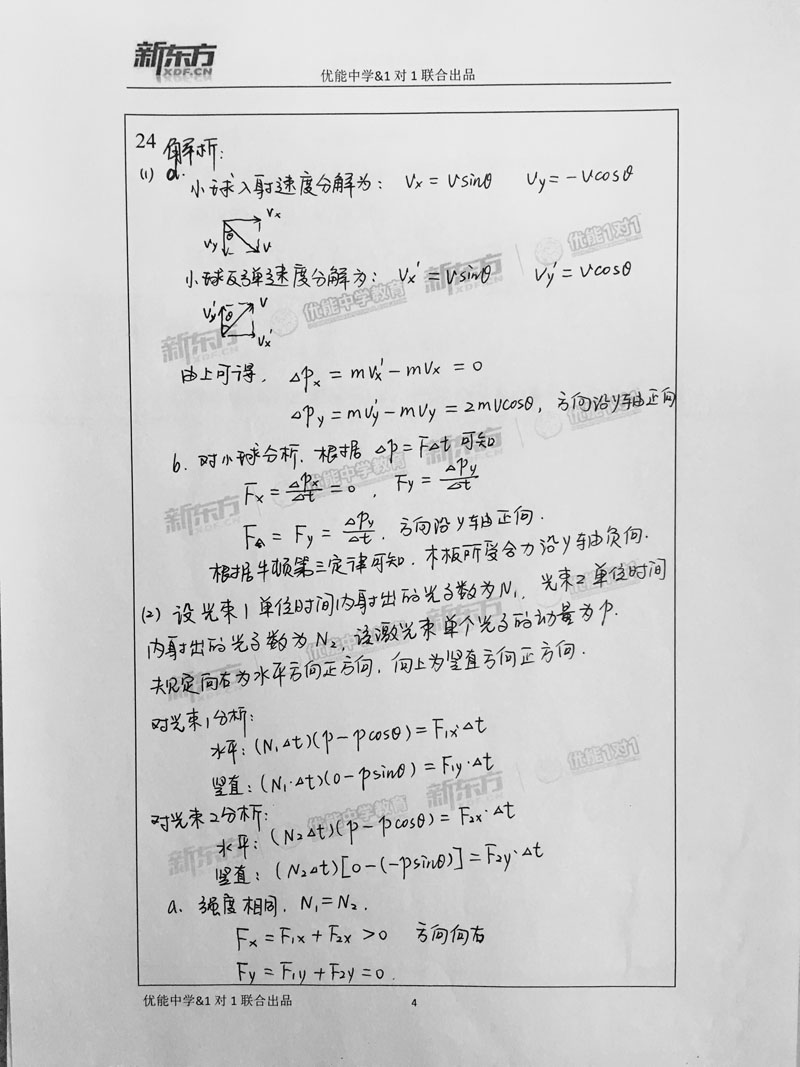 新东方
XDF.CN
优能中学&1 对 1 联合出品
24 解析:
(1) a. 小球入射速度分解为: Vx = Vsinθ Vy = -Vcosθ
Vx
θ
Vy V
小球反弹速度分解为: Vx' = Vsinθ Vy' = Vcosθ
Vy' θ V
Vx'
由上可得, △px = mVx' - mVx = 0
△py = mVy' - mVy = 2mVcosθ, 方向沿y轴正向
b. 对小球分析, 根据 △p = F△t 可知
Fx = △px/△t = 0, Fy = △py/△t
F合 = Fy = △py/△t, 方向沿y轴正向.
根据牛顿第三定律可知, 木板所受合力沿y轴负向.
(2) 设光束1单位时间内射出的光子数为N1, 光束2单位时间
内射出的光子数为N2, 该激光束单个光子的动量为p.
规定向右为水平方向正方向, 向上为竖直方向正方向.
对光束1分析:
水平: (N1△t)(p - pcosθ) = F1x·△t
竖直: (N1·△t)(0 - psinθ) = F1y·△t
对光束2分析:
水平: (N2△t)(p - pcosθ) = F2x·△t
竖直: (N2△t)[0-(-psinθ)] = F2y·△t
a. 强度相同, N1 = N2.
Fx = F1x + F2x > 0 方向向右
Fy = F1y + F2y = 0.
优能中学&1 对 1 联合出品
4